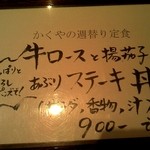 かくやの週替り定食
牛ロースと揚茄子
あぶりステーキ丼
(サラダ、香物、汁)
900-